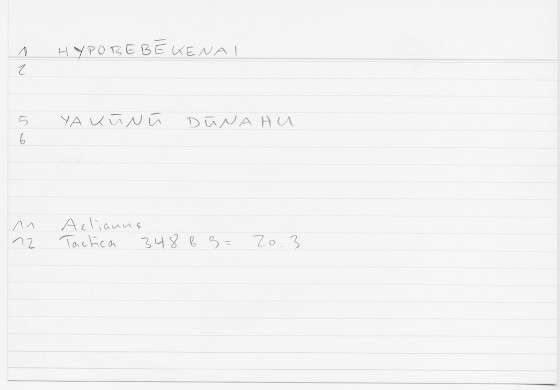 1 HYPOREBĒKENAI
2
5 YAKŪNŪ DŪNAHU
6
11 Aelianus
12 Tactica 348 B 9 = 20.3